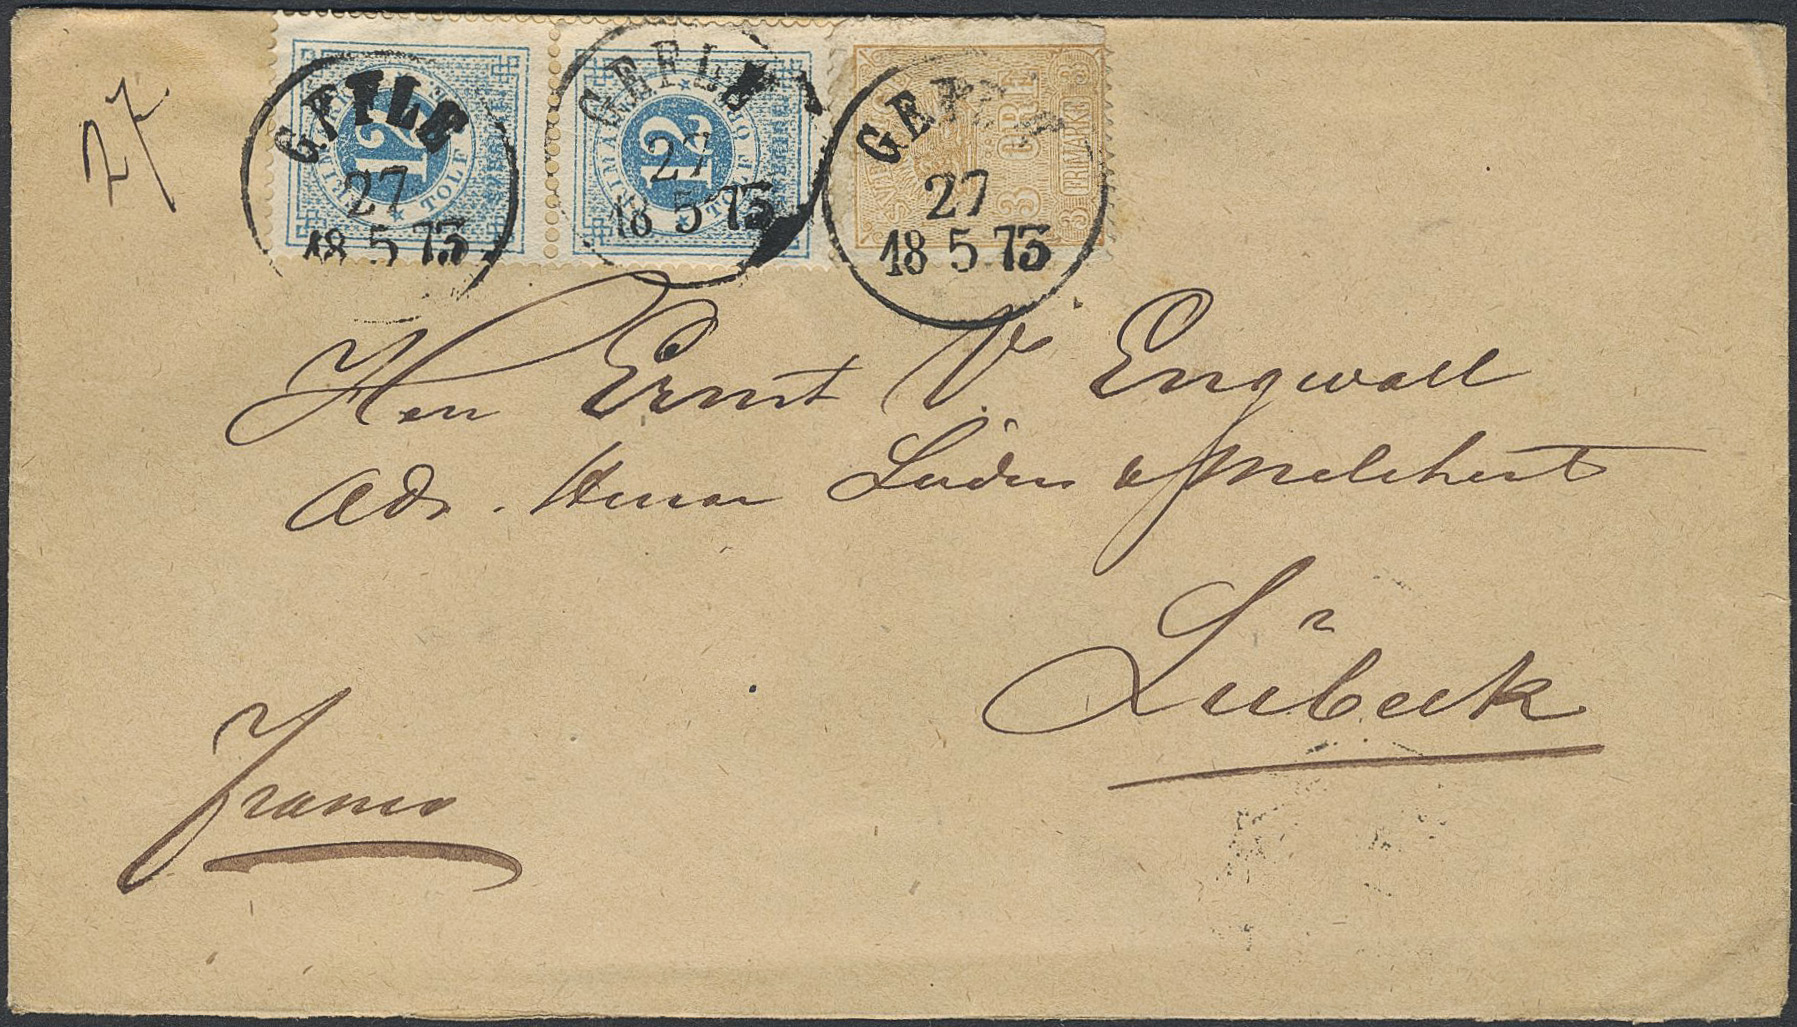 27.
12
TOLF
GEFLE
27
18 5 75
12
FRIMÄRKE
TOLF ÖRE
GEFLE
27
18 5 75
3 ÖRE
3 FRIMÄRKE 3
GEFLE
27
18 5 75
Herr Ernst V. Engwall
Adr. Herrar Lüders & Melchert
Lübeck
Franco